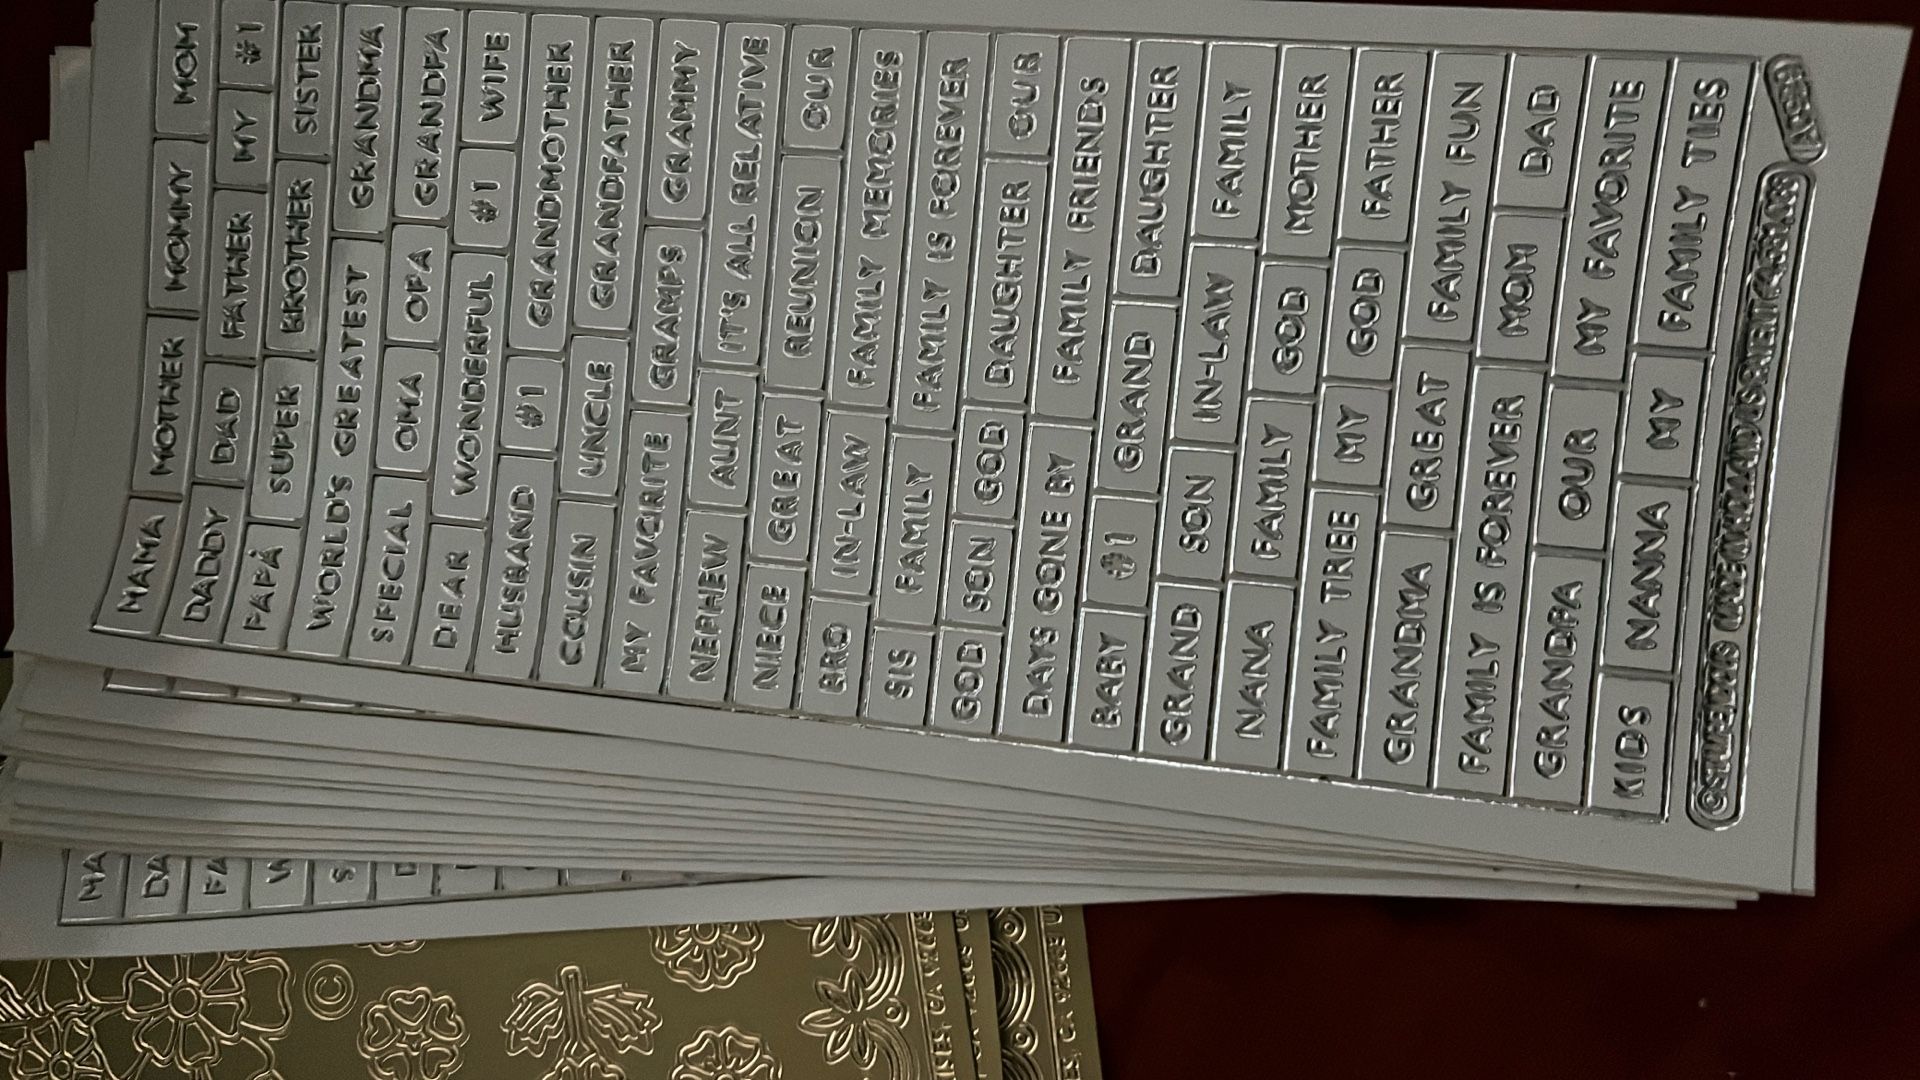 MAMA MOTHER MOMMY MOM
DADDY DAD FATHER MY #1
PAPÁ SUPER BROTHER SISTER
WORLD'S GREATEST GRANDMA
SPECIAL OMA OPA GRANDPA
DEAR WONDERFUL #1 WIFE
HUSBAND #1 GRANDMOTHER
COUSIN UNCLE GRANDFATHER
MY FAVORITE GRAMPS GRAMMY
NEPHEW AUNT IT'S ALL RELATIVE
NIECE GREAT REUNION OUR
BRO IN-LAW FAMILY MEMORIES
SIS FAMILY FAMILY IS FOREVER
GOD SON GOD DAUGHTER OUR
DAYS GONE BY FAMILY FRIENDS
BABY #1 GRAND DAUGHTER
GRAND SON IN-LAW FAMILY
NANA FAMILY GOD MOTHER
FAMILY TREE MY GOD FATHER
GRANDMA GREAT FAMILY FUN
FAMILY IS FOREVER MOM DAD
GRANDPA OUR MY FAVORITE
KIDS NANNA MY FAMILY TIES
MA
DA
PA
W
S
D
©